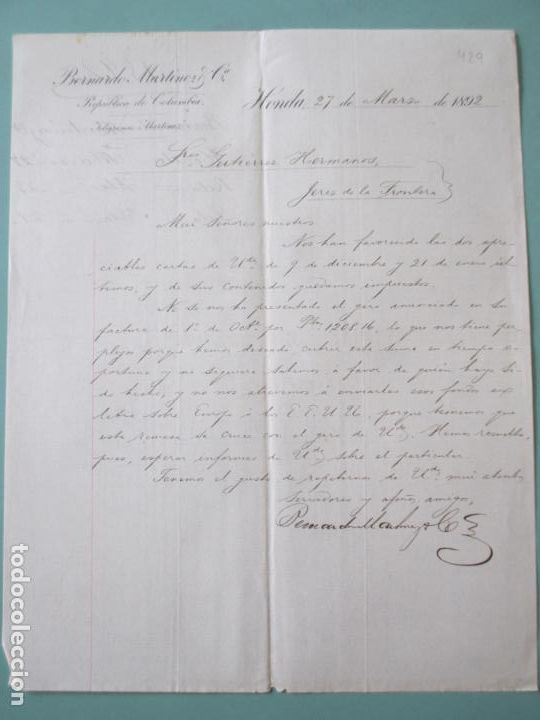 429
Bernardo Martínez & Cª
República de Colombia.
Telegramas: Martínez
Honda, 27 de Marzo de 1892
Sres Gutierrez Hermanos,
Jerez de la Frontera
Mui Señores nuestros:
Nos han favorecido las dos apre-
ciables cartas de Uds de 9 de diciembre y 21 de enero úl-
timos, y de sus contenidos quedamos impuestos.
No se nos ha presentado el giro anunciado en su
factura de 1º de Octe por Pts 1208.16, lo que nos tiene per-
plejos porque hemos deseado cubrir esta suma en tiempo o-
portuno y no siquiera sabemos á favor de quién haya si-
do hecho, y no nos atrevemos á enviarles esos fondos en
letra sobre Europa ó los E. E. U U., porque tememos que
esta remesa se cruce con el giro de Uds. Hemos resuelto,
pues, esperar informes de Uds sobre el particular.
Tenemos el gusto de repetirnos de Uds mui atentos
servidores y afmos amigos,
Bernardo Martínez & Cª
todocoleccion